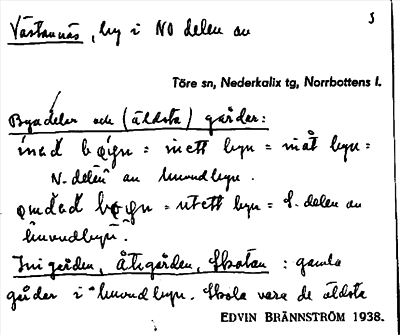 5
Västannäs, by i NO delen av
Töre sn, Nederkalix tg, Norrbottens l.
Byadelar och (äldsta) gårdar:
inad bøign = inett byn = inåt byn =
N. delen av huvudbyn.
omdad bøign = utett byn = S. delen av
huvudbyn.
Inigården, Åtigården, Skatan : gamla
gårdar i huvudbyn. Skola vara de äldsta
EDVIN BRÄNNSTRÖM 1938.